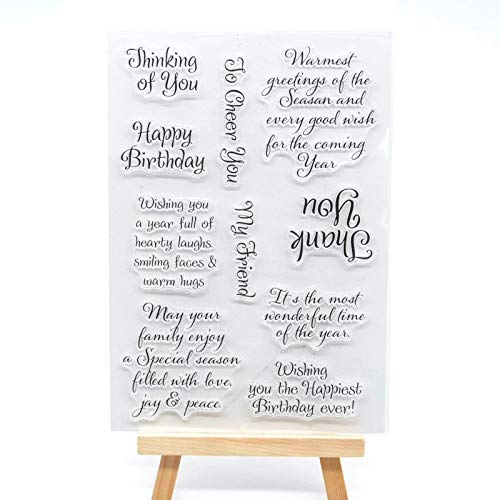 Thinking
of You
Happy
Birthday
Wishing you
a year full of
hearty laughs.
smiling faces &
warm hugs
May your
family enjoy
a Special season
filled with love,
jay & peace.
To Cheer You
My Friend
Warmest
greetings of the
Seasan and
every good wish
for the coming
Year
Thank
You
It's the most
wonderful time
of the year.
Wishing
you the Happiest
Birthday ever!